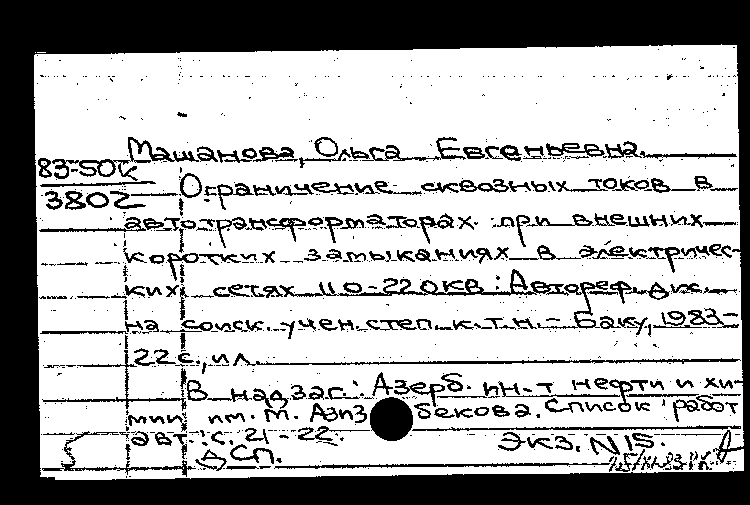 Машанова, Ольга Евгеньевна.
83-50К
3802
Ограничение сквозных токов в
автотрансформаторах при внешних
коротких замыканиях в электричес-
ких сетях 110-220кв : Автореф. дис.
на соиск. учен. степ. к.т.н. - Баку, 1983 -
22 с., ил.
В надзаг.: Азерб. ин-т нефти и хи-
мии им. М. Азизбекова. Список работ
авт.: с. 21-22.
ДСП. Экз. N15.